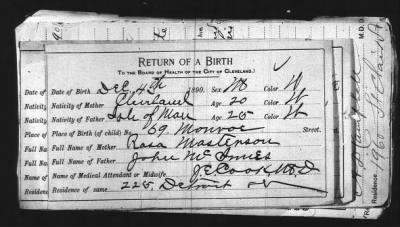 RETURN OF A BIRTH
To the Board of Health of the City of Cleveland.
Date of Birth Dec. 4th 1890. Sex M Color W
Nativity of Mother Cleveland Age. 20 Color W
Nativity of Father Isle of Man Age. 25
Place of Birth (of child) No. 69 Monroe Street.
Full Name of Mother Rosa Mastenson
Full Name of Father John McInnes
Name of Medical Attendant or Midwife, J E Cook, M.D
Residence of same 225 Detroit
Date of
Nativity
Nativity
Place of
Full Na
Full Na
Name
Residen
M.D.
Residence 1960 St Clair St